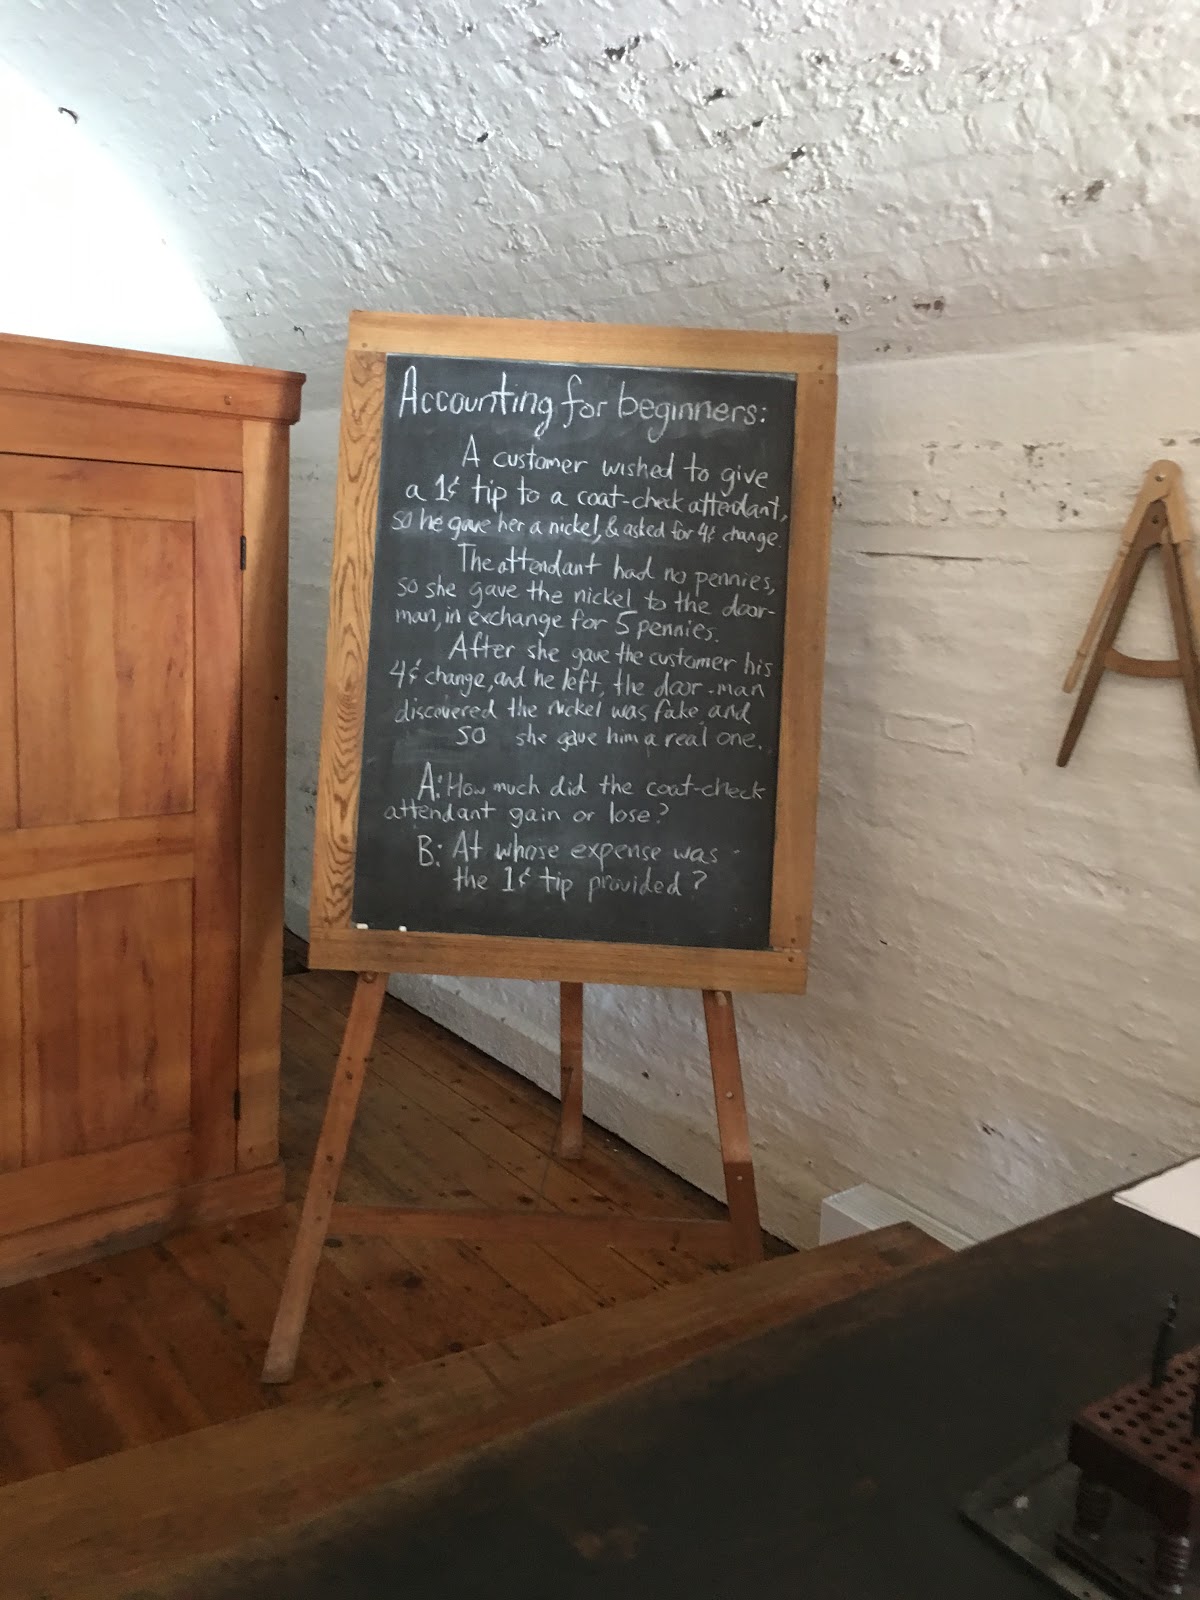 Accounting for beginners:
A customer wished to give
a 1¢ tip to a coat-check attendant,
so he gave her a nickel, & asked for 4¢ change.
The attendant had no pennies,
so she gave the nickel to the door-
man, in exchange for 5 pennies.
After she gave the customer his
4¢ change, and he left, the door-man
discovered the nickel was fake, and
so she gave him a real one.
A: How much did the coat-check
attendant gain or lose?
B: At whose expense was
the 1¢ tip provided?